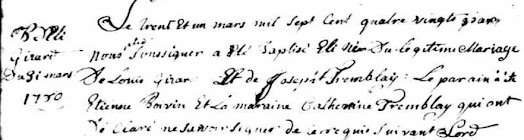 Le trent et un mars mil sept Cent quatre vingts par
B Elie
Girard
Du 31 mars
1780
Nous Soussigner a Eté Baptisé Elie Née Du Legitime Mariage
De Louis Girar Et de Joseph Tremblay: Le parain a été
Etienne Boivin Et La maraine Catherine Tremblay qui ont
Déclaré ne Savoir Signer de ce requis Suivant Lord